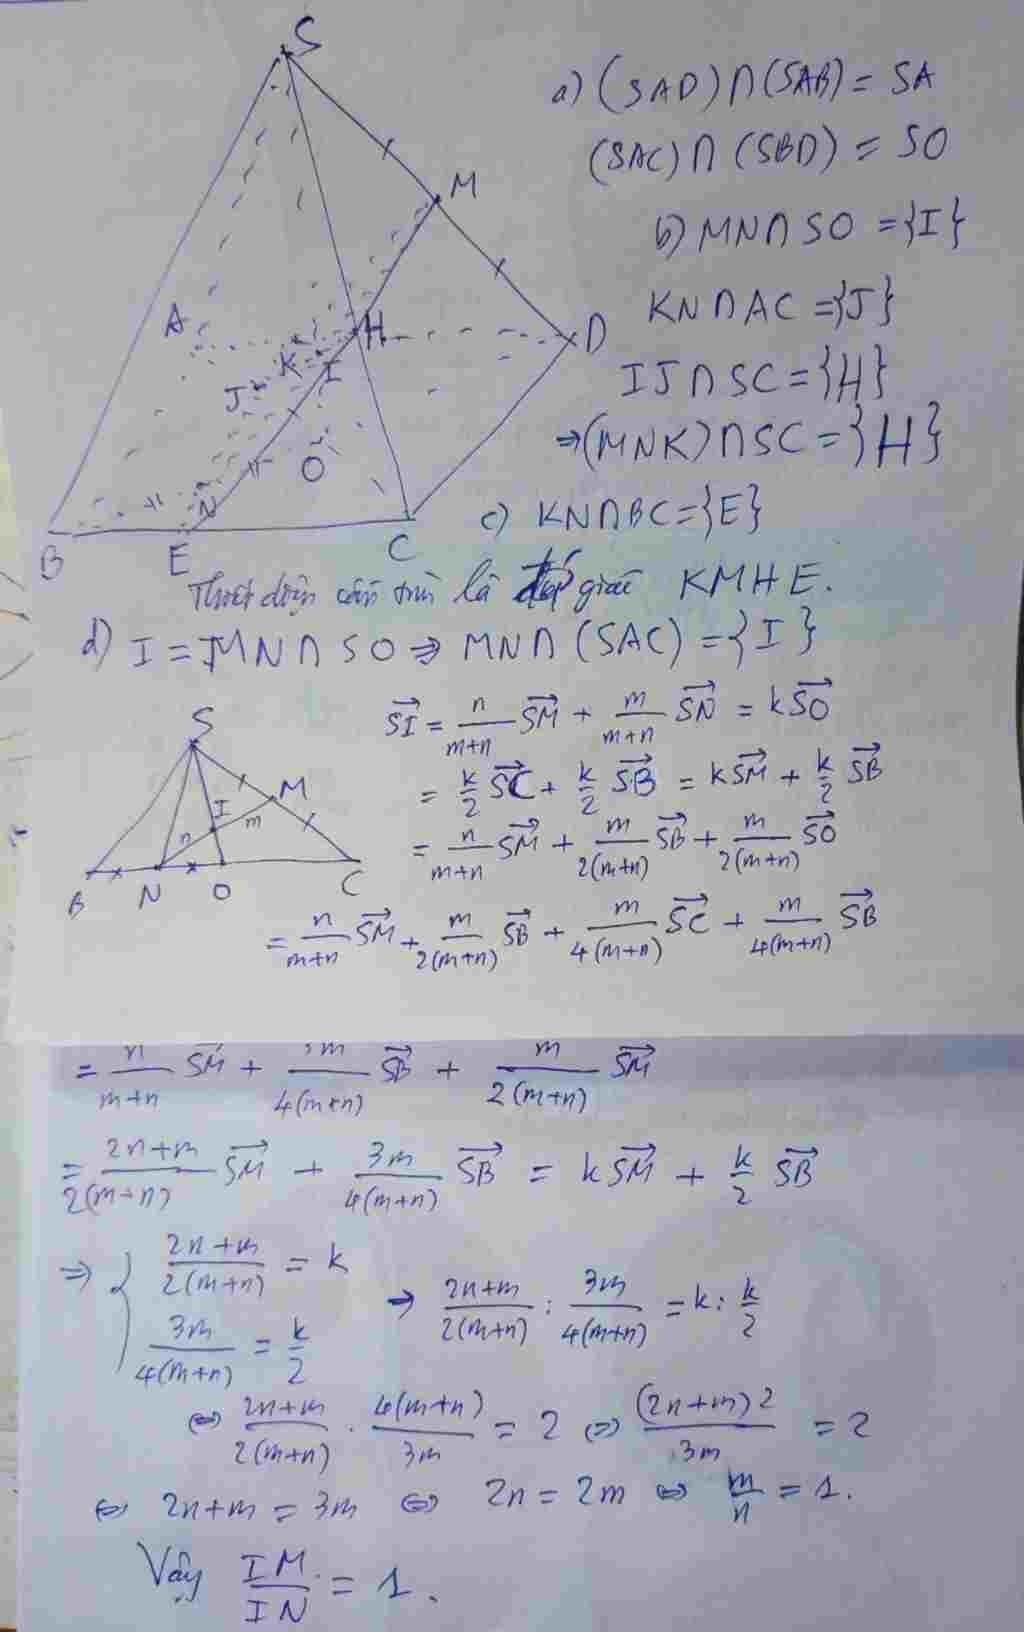 S
M
A
H
D
K
I
J
O
N
B
E
C
a) (SAD)∩(SAB) = SA
(SAC)∩(SBD) = SO
b) MN∩SO = {I}
KN∩AC = {J}
IJ∩SC = {H}
⇒(MNK)∩SC = {H}
c) KN∩BC = {E}
Thiết diện cần tìm là tứ giác KMHE.
d) I = MN∩SO ⇒ MN∩(SAC) = {I}
S
M
I
n
m
B
N
O
C
$\overrightarrow{SI} = \frac{n}{m+n}\overrightarrow{SM} + \frac{m}{m+n}\overrightarrow{SN} = k\overrightarrow{SO}$
$= \frac{k}{2}\overrightarrow{SC} + \frac{k}{2}\overrightarrow{SB} = k\overrightarrow{SM} + \frac{k}{2}\overrightarrow{SB}$
$= \frac{n}{m+n}\overrightarrow{SM} + \frac{m}{2(m+n)}\overrightarrow{SB} + \frac{m}{2(m+n)}\overrightarrow{SO}$
$= \frac{n}{m+n}\overrightarrow{SM} + \frac{m}{2(m+n)}\overrightarrow{SB} + \frac{m}{4(m+n)}\overrightarrow{SC} + \frac{m}{4(m+n)}\overrightarrow{SB}$
$= \frac{n}{m+n}\overrightarrow{SM} + \frac{3m}{4(m+n)}\overrightarrow{SB} + \frac{m}{2(m+n)}\overrightarrow{SM}$
$= \frac{2n+m}{2(m+n)}\overrightarrow{SM} + \frac{3m}{4(m+n)}\overrightarrow{SB} = k\overrightarrow{SM} + \frac{k}{2}\overrightarrow{SB}$
$\Rightarrow \begin{cases} \frac{2n+m}{2(m+n)} = k \\ \frac{3m}{4(m+n)} = \frac{k}{2} \end{cases} \rightarrow \frac{2n+m}{2(m+n)} : \frac{3m}{4(m+n)} = k : \frac{k}{2}$
$\Leftrightarrow \frac{2n+m}{2(m+n)} \cdot \frac{4(m+n)}{3m} = 2 \Leftrightarrow \frac{(2n+m)2}{3m} = 2$
$\Leftrightarrow 2n+m = 3m \Leftrightarrow 2n = 2m \Leftrightarrow \frac{m}{n} = 1.$
Vậy $\frac{IM}{IN} = 1.$